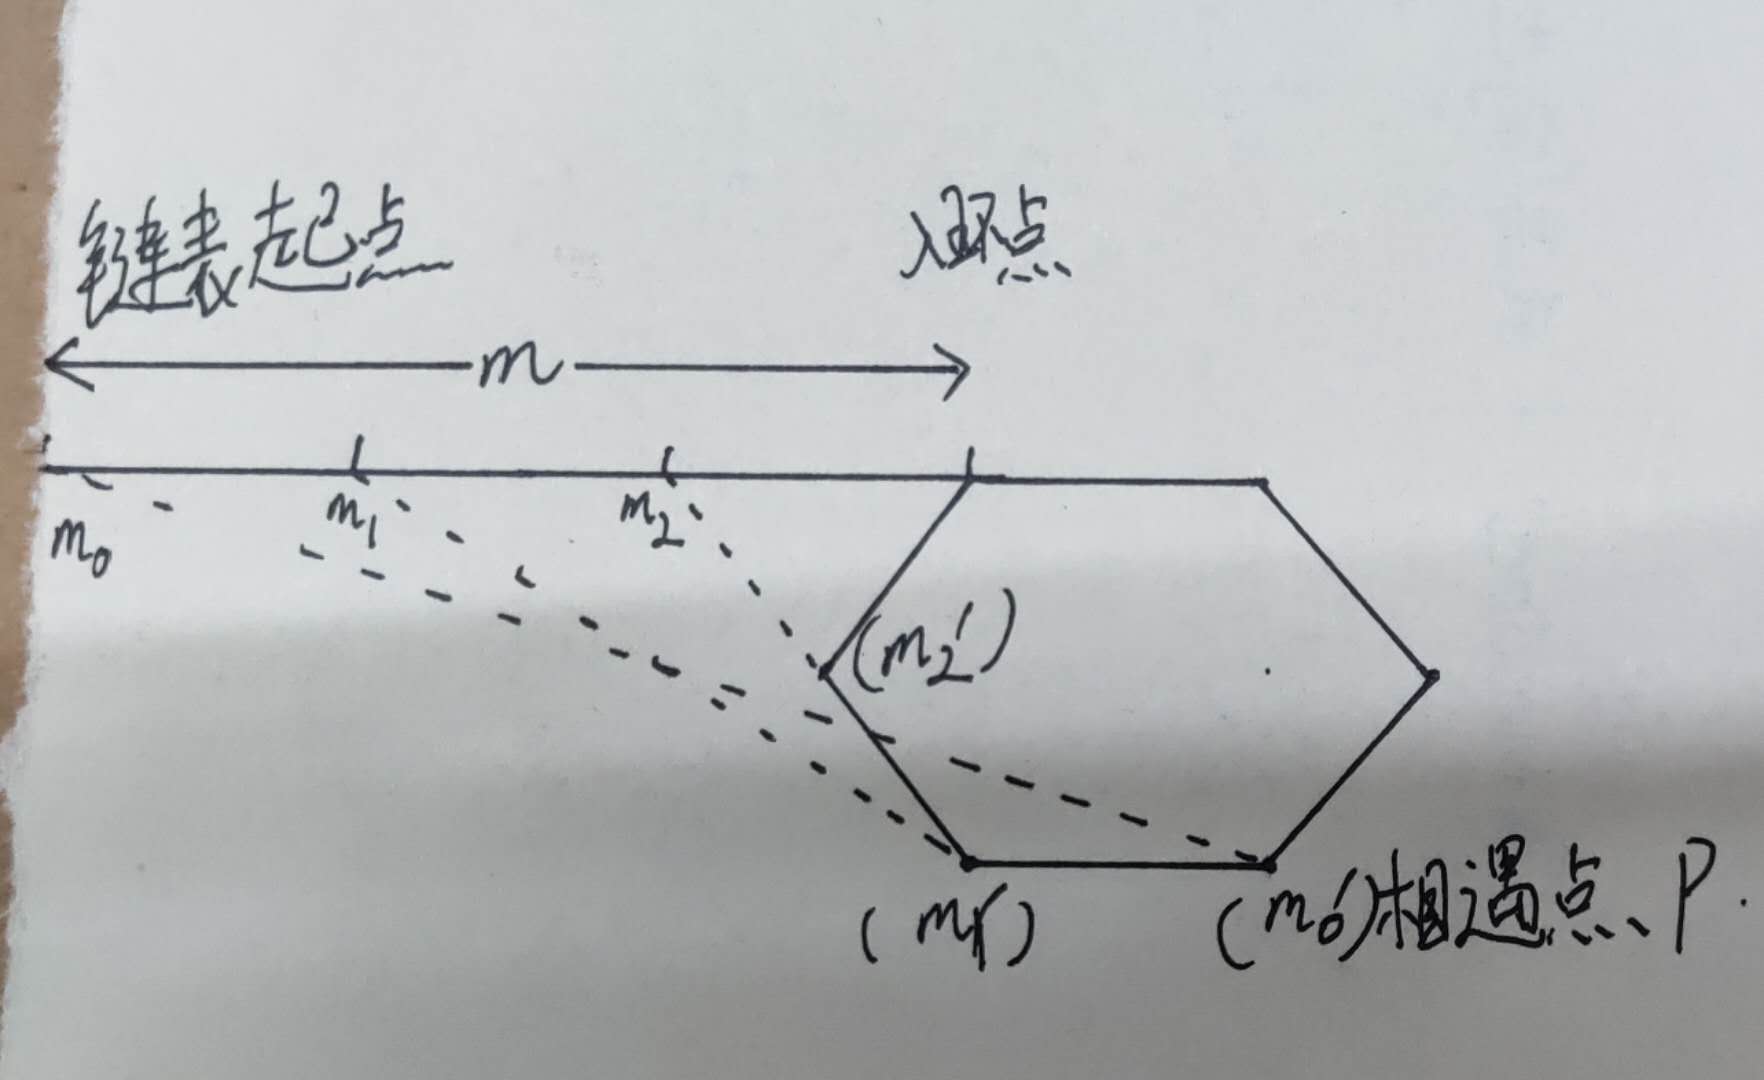 链表起点 入环点
m
m₀ m₁ m₂
(m₂′)
(m₁′) (m₀′)相遇点、P.